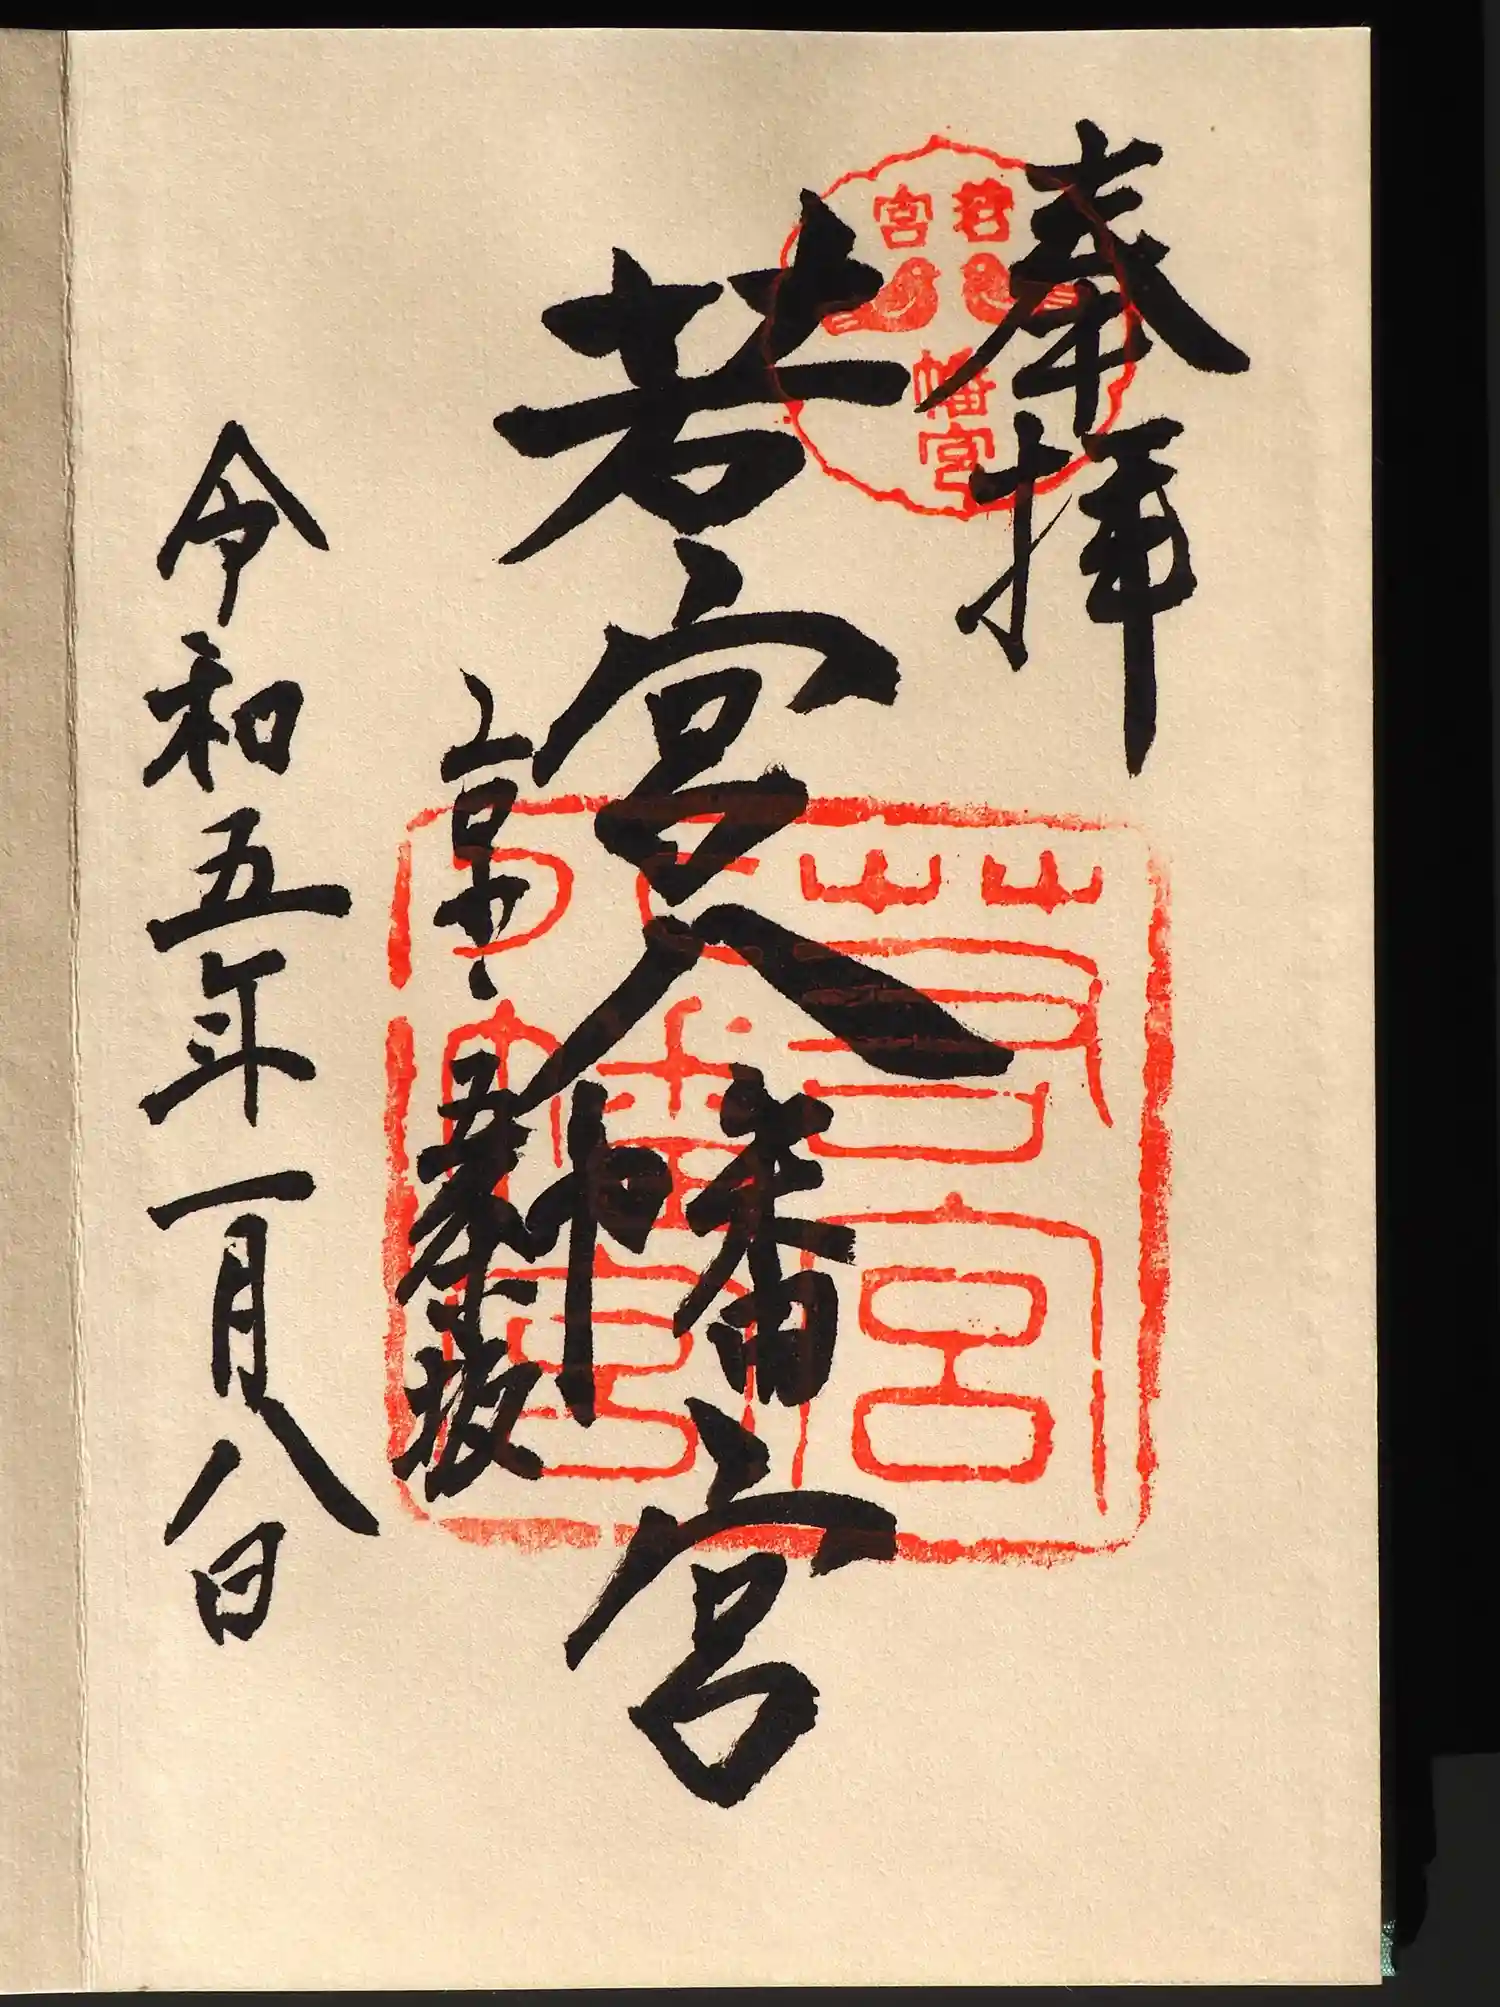 奉拝
若宮八幡宮
京都 五条坂
令和五年一月八日
若宮
幡宮
若宮八幡宮